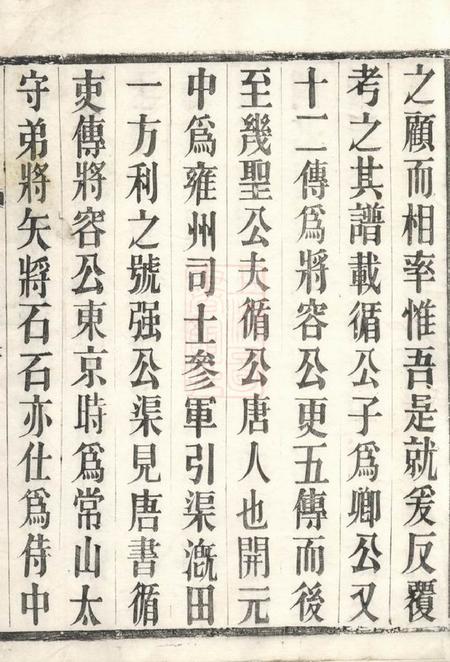 之顧而相率惟吾是就爰反覆
考之其譜載循公子爲卿公又
十二傳爲將容公更五傳而後
至幾聖公夫循公唐人也開元
中爲雍州司士參軍引渠漑田
一方利之號强公渠見唐書循
吏傳將容公東京時爲常山太
守弟將矢將石石亦仕爲侍中